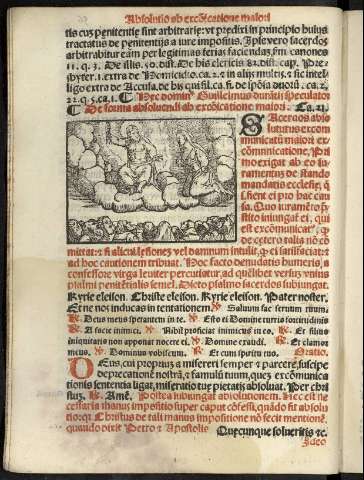 Absolutio ab excōicatione maiori
tis cuȝ penitētie sint arbitrarie: vt predixi in principio huius
tractatus de penitentijs a iure impositis. Ipse vero sacerdos
arbitrabitur eam per legitimas ferias faciendaȝ, ꝓm canones
II. q. 3. De illis. 50. dist. De his clericis 82. dist. cap. Pres
byter. I. extra de Homicidio. ca. 2. ⁊ in alijs multis. ⁊ sic intel
ligo extra de
22. q. 5. ca. I. Hec dominꝰ Guilielmꝰ durātis speculator
De forma absoluendi ab excōicatione maiori. Ca. 21.
Sacerdos abso
luturus excom
municatū maiori ex
cōmunicatione, Pri
mo exigat ab eo iu
ramentuȝ de stando
mandatis ecclesie, q̄
fient ei pro hac cau
sa. Quo iuramēto p̄
stito iniungat ei, qui
est excōmunicatꝰ, ꝙ
de cetero talia nō cō
mittat: ⁊ si alicui lesionez vel damnum intulit, ꝙ ei satisfaciat: ⁊
ad hoc cautionem tribuat. Hoc facto denudatis humeris, a
confessore virga leuiter percutiatur, ad quēlibet versuȝ vnius
psalmi penitētialis semel. Dicto psalmo sacerdos subiungat.
Kyrie eleison. Christe eleison. Kyrie eleison. Pater noster.
Et ne nos inducas in tentationem ℣. Saluum fac seruum tuum.
℟. Deus meus sperantem in te. ℣. Esto ei Domine turris fortitudinis
℟. A facie inimici. ℣. Nihil proficiat inimicus in eo. ℟. Et filius
iniquitatis non apponat nocere ei. ℣. Domine exaudi. ℟. Et clamor
meus. ℣. Dominus vobiscum. ℟. Et cum spiritu tuo. Oratio.
Deus, cui propriuȝ ē misereri semper ⁊ parcere, suscipe
deprecationē nostrā, ⁊ famulū tuum, quez excōmunica
tionis sententia ligat, miseratio tue pietatis absoluat. Per chri
stuȝ. ℟. Amē. Postea iubungat absolutionem. Nec est ne
cessaria manus impositio super caput cōfessi, quādo fit absolu
tio: qȝ Christus de tali manus impositione nō fecit mentionē,
quando dixit Petro ⁊ Apostolis
Quecunque solueritis ⁊c.
Ideo